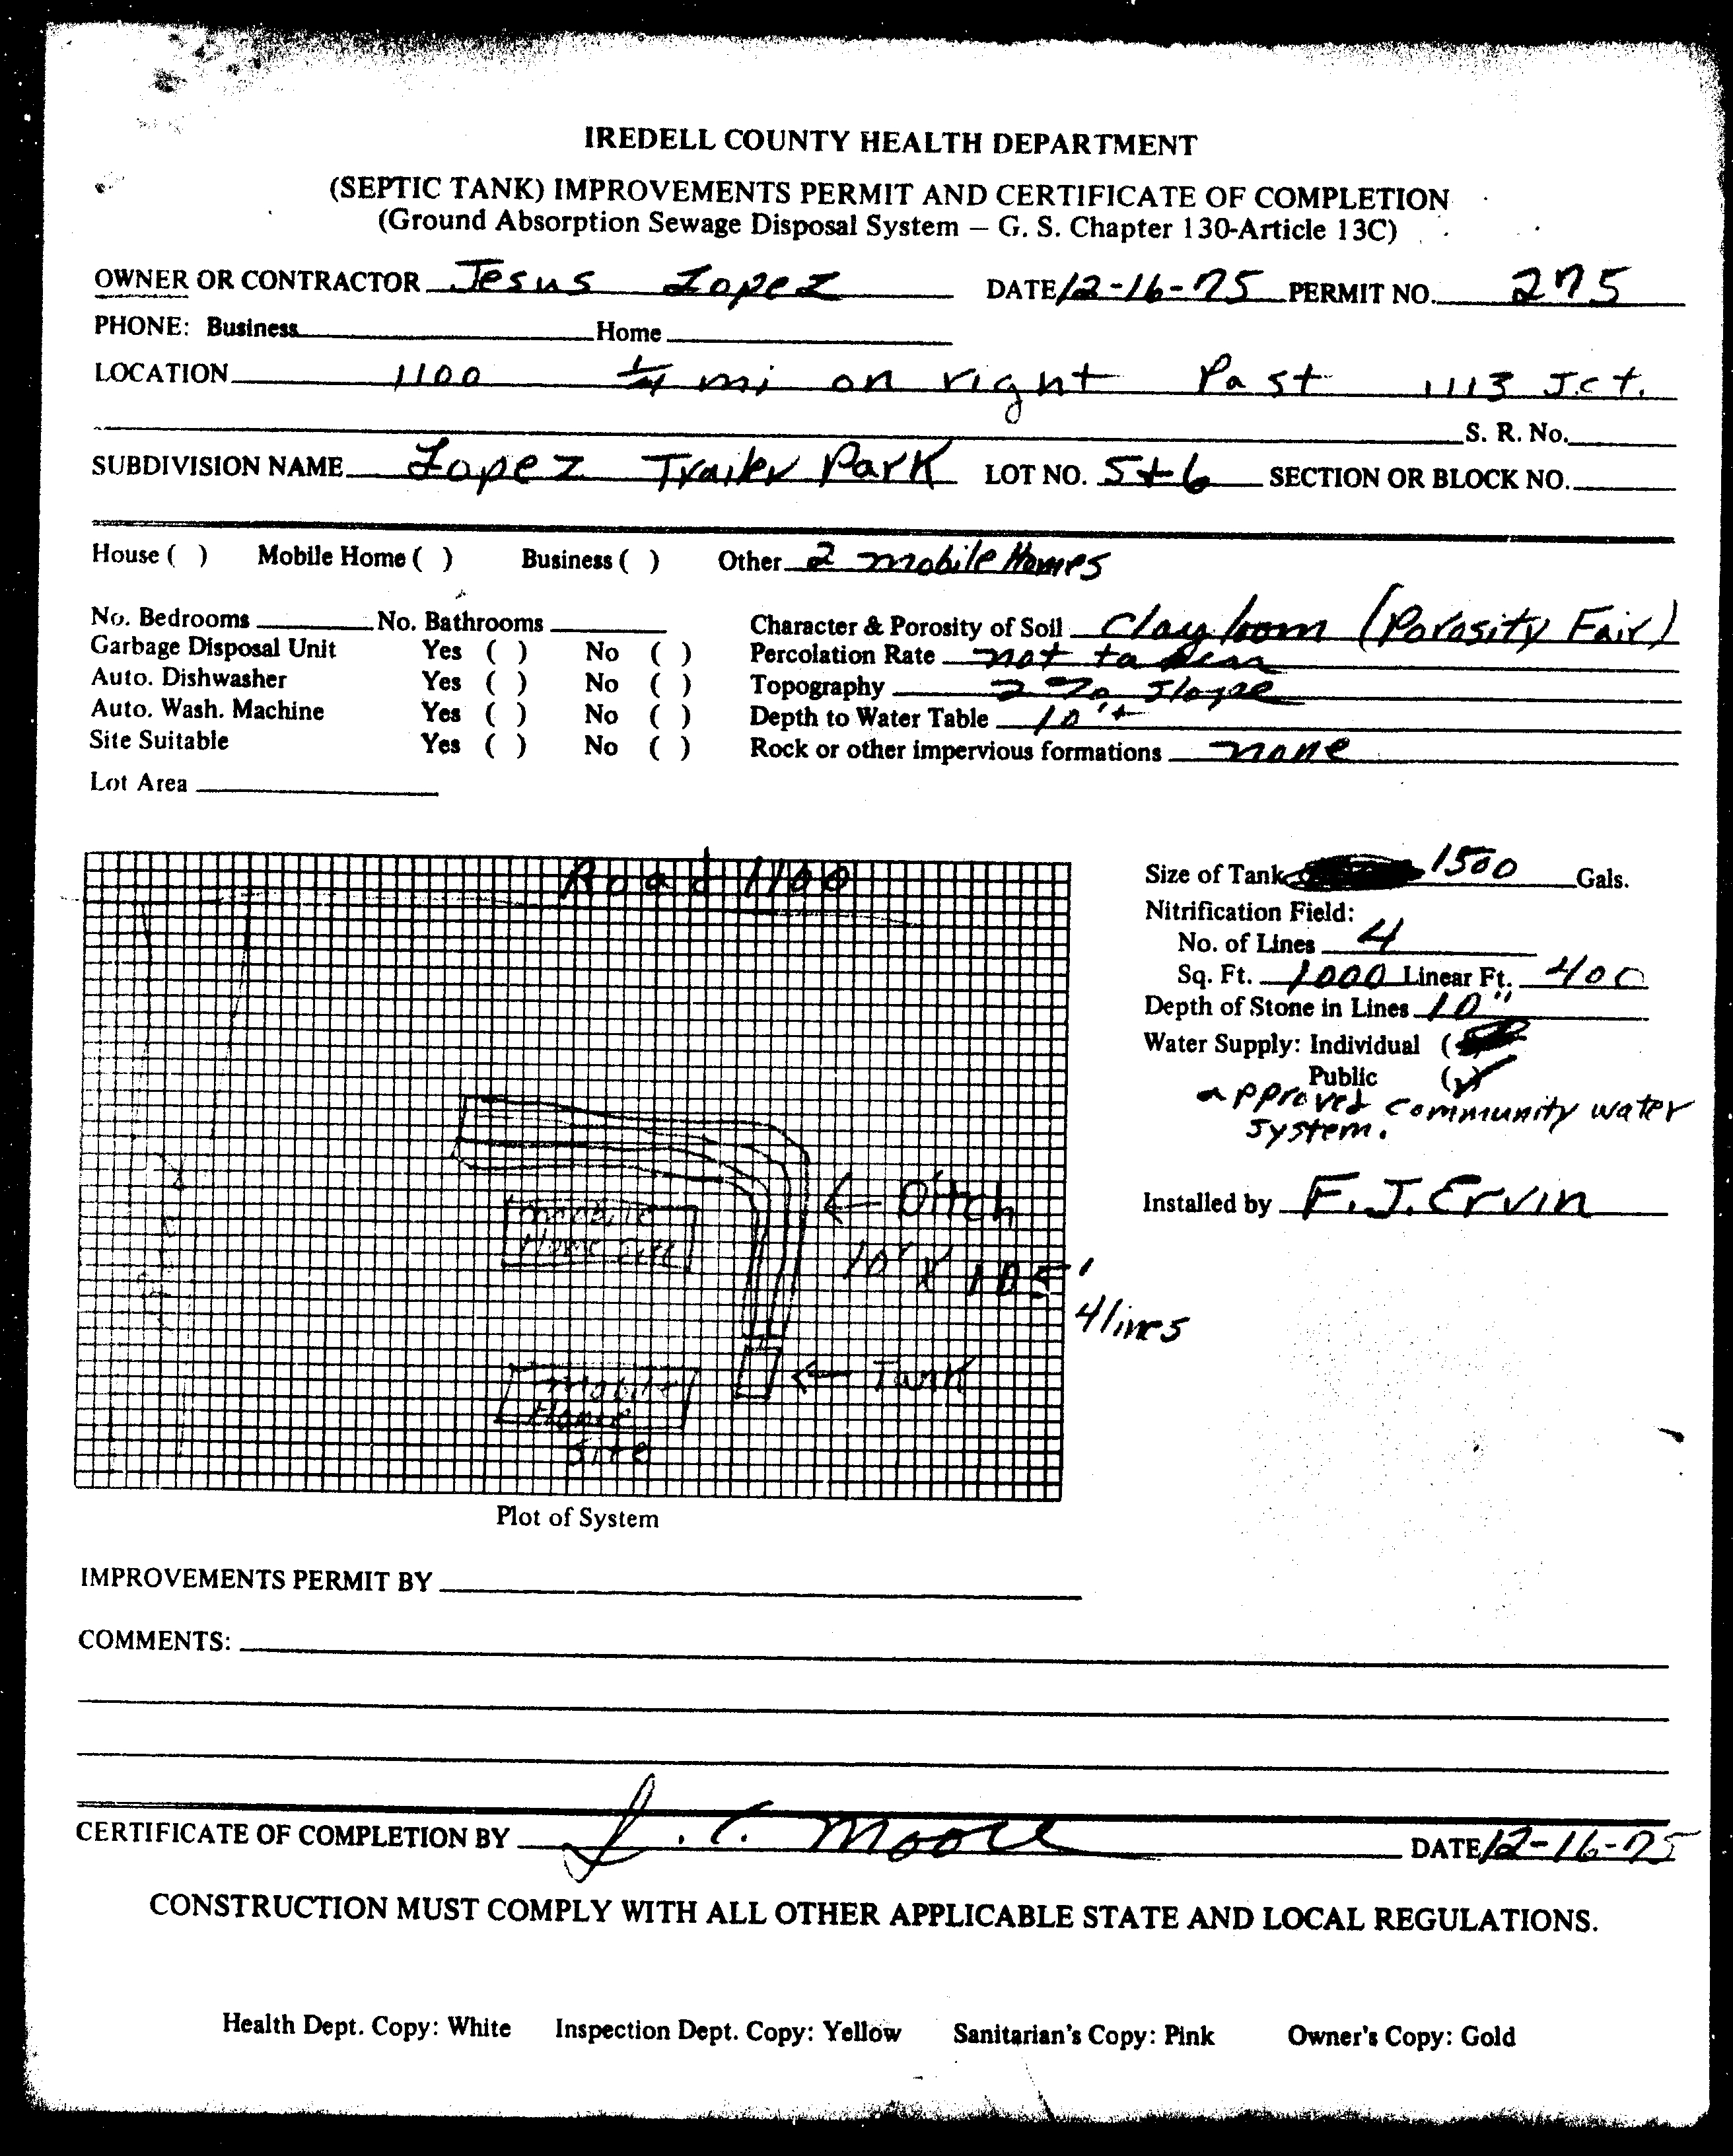 IREDELL COUNTY HEALTH DEPARTMENT
(SEPTIC TANK) IMPROVEMENTS PERMIT AND CERTIFICATE OF COMPLETION
(Ground Absorption Sewage Disposal System – G. S. Chapter 130-Article 13C)
OWNER OR CONTRACTOR Jesus Lopez DATE 12-16-75 PERMIT NO. 275
PHONE: Business Home
LOCATION 1100 1/4 mi on right Past 1113 Jct.
S. R. No.
SUBDIVISION NAME Lopez Trailer Park LOT NO. 5+6 SECTION OR BLOCK NO.
House ( ) Mobile Home ( ) Business ( ) Other 2 mobile Homes
No. Bedrooms No. Bathrooms Character & Porosity of Soil Clay loom (Porosity Fair)
Garbage Disposal Unit Yes ( ) No ( ) Percolation Rate not
Auto. Dishwasher Yes ( ) No ( ) Topography 2% Slope
Auto. Wash. Machine Yes ( ) No ( ) Depth to Water Table 10'+
Site Suitable Yes ( ) No ( ) Rock or other impervious formations none
Lot Area
Road 1100
Size of Tank 1500 Gals.
Nitrification Field:
No. of Lines 4
Sq. Ft. 1000 Linear Ft. 400
Depth of Stone in Lines 10"
Water Supply: Individual ( )
Public (✓)
approved community water
system.
Installed by F. J. Ervin
← Ditch
mobile
Home
10' X 105'
4 lines
← Tank
mobile
Home
Site
Plot of System
IMPROVEMENTS PERMIT BY
COMMENTS:
CERTIFICATE OF COMPLETION BY J. C. Moore DATE 12-16-75
CONSTRUCTION MUST COMPLY WITH ALL OTHER APPLICABLE STATE AND LOCAL REGULATIONS.
Health Dept. Copy: White Inspection Dept. Copy: Yellow Sanitarian's Copy: Pink Owner's Copy: Gold